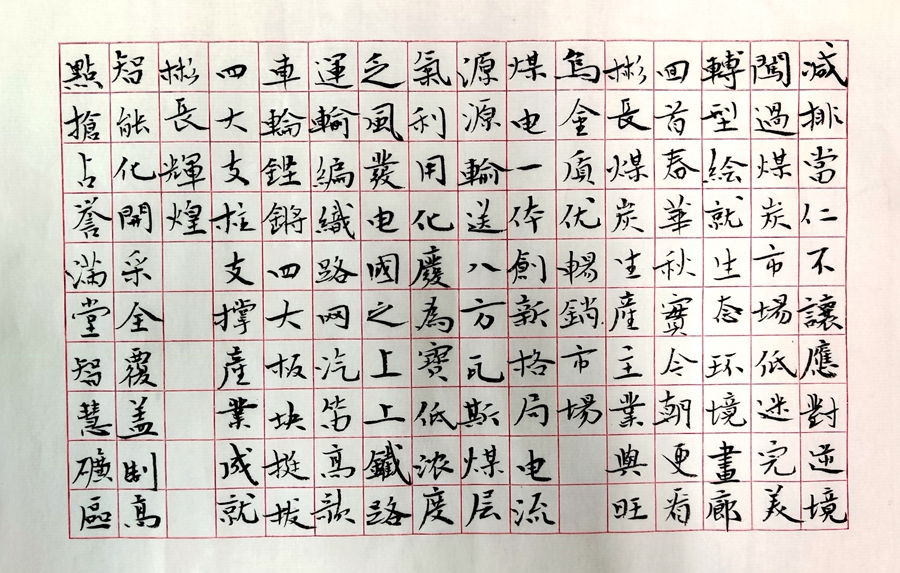 减排當仁不讓應對逆境
闖過煤炭市場低迷完美
轉型絵就生态环境畫廊
回首春華秋實今朝更看
彬長煤炭生産主業興旺
烏金质优暢銷市場
煤电一体創新格局电流
源源輸送八方瓦斯煤层
氣利用化廢為寶低浓度
乏風發电國之上上鐵路
運輸編織路网汽笛高歌
車輪鏗鏘四大板块挺拔
四大支柱支撑産業成就
彬長輝煌
智能化開采全覆盖制高
點搶占誉滿堂智慧礦區